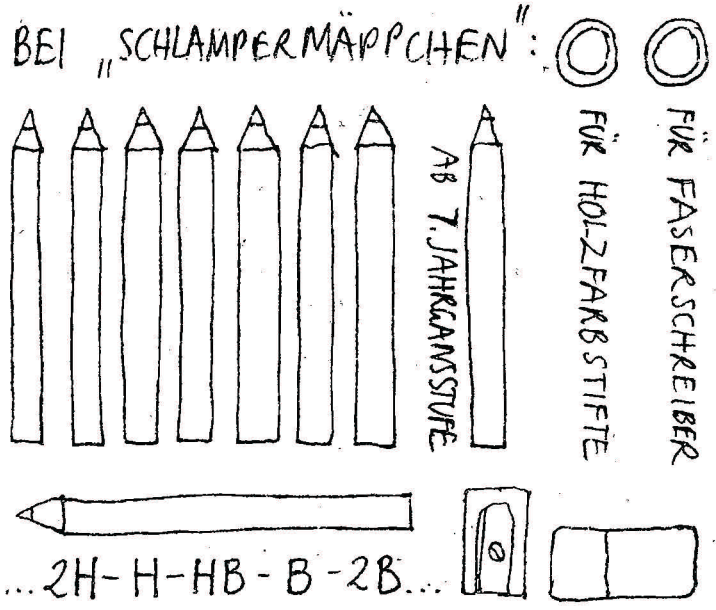 BEI „SCHLAMPERMÄPPCHEN":
AB 7. JAHRGANSSTUFE
FÜR HOLZFARBSTIFTE
FÜR FASERSCHREIBER
...2H-H-HB-B-2B...